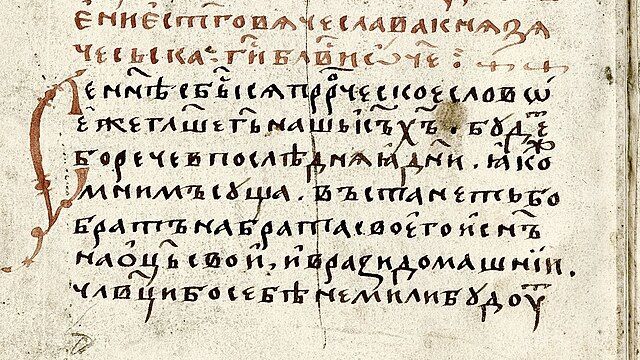 ение ст҃го вѧчеслава кнѧзѧ
чесьска· г҃и бл҃ви ѡч҃е :
Се нн҃ѣ сбыⷭ҇сѧ прⷪ҇рческое слово
еже гл҃ше г҃ь нашь іс҃ъ х҃ъ. будеⷮ
бо рече в послѣднѧꙗ дн҃и. ꙗкоⷤ
мнимъ суща. въстанеть бо
братъ на брата своего и сн҃ъ
на оц҃ь свои, и врази домашнїи.
чл҃вци бо себѣ немили будоуⷮ